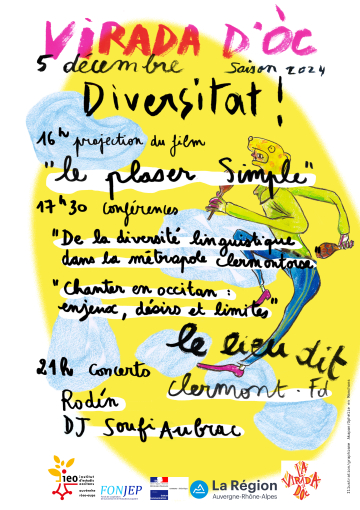 VIRADA D'ÒC
5 décembre Saison 2024
Diversitat !
16h projection du film
"le plaser Simple"
17h30 conférences
"De la diversité linguistique
dans la métropole clermontoise"
"Chanter en occitan :
enjeux, désirs et limites"
le lieu dit
Clermont-Fd
21h Concerts
Rodín
DJ Soufi Aubrac
ieo
institut
d'estudis
occitans
FONJEP
La Région
Auvergne-Rhône-Alpes
LA
VIRADA
D'ÒC